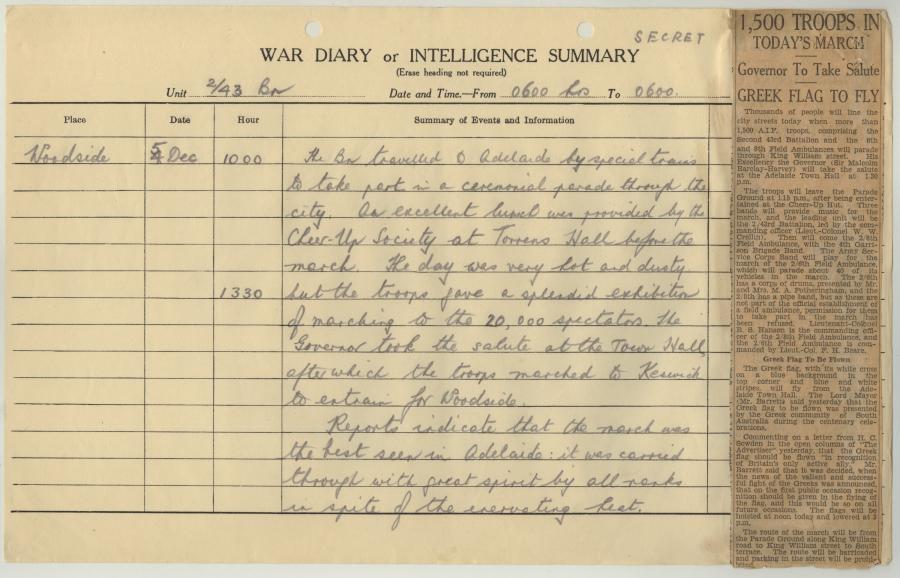 SECRET
WAR DIARY or INTELLIGENCE SUMMARY
(Erase heading not required)
Unit 2/43 Bn Date and Time.—From 0600 hrs To 0600.
Place Date Hour Summary of Events and Information
Woodside 5 Dec 1000 The Bn travelled to Adelaide by special train
to take part in a ceremonial parade through the
city. An excellent lunch was provided by the
Cheer-Up Society at Torrens Hall before the
march. The day was very hot and dusty
1330 but the troops gave a splendid exhibition
of marching to the 20,000 spectators. The
Governor took the salute at the Town Hall,
after which the troops marched to Keswick
to entrain for Woodside.
Reports indicate that the march was
the best seen in Adelaide: it was carried
through with great spirit by all ranks
in spite of the enervating heat.
1,500 TROOPS IN
TODAY'S MARCH
Governor To Take Salute
GREEK FLAG TO FLY
Thousands of people will line the
city streets today when more than
1,500 A.I.F. troops, comprising the
Second 43rd Battalion and the 6th
and 8th Field Ambulances will parade
through King William street. His
Excellency the Governor (Sir Malcolm
Barclay-Harvey) will take the salute
at the Adelaide Town Hall at 1.30
p.m.
The troops will leave the Parade
Ground at 1.15 p.m., after being enter-
tained at the Cheer-Up Hut. Three
bands will provide music for the
march, and the leading unit will be
the 2/43rd Battalion, led by the com-
manding officer (Lieut.-Colonel W. W.
Crellin). Then will come the 2/8th
Field Ambulance, with the 4th Garri-
son Brigade Band. The Army Ser-
vice Corps Band will play for the
march of the 2/6th Field Ambulance,
which will parade about 40 of its
vehicles in the march. The 2/6th
has a corps of drums, presented by Mr.
and Mrs. M. A. Fotheringham, and the
2/8th has a pipe band, but as these are
not part of the official establishment of
a field ambulance, permission for them
to take part in the march has
been refused. Lieutenant-Colonel
B. S. Hanson is the commanding offi-
cer of the 2/8th Field Ambulance, and
the 2/6th Field Ambulance is com-
manded by Lieut.-Col. F. H. Beare.
Greek Flag To Be Flown
The Greek flag, with its white cross
on a blue background in the
top corner and blue and white
stripes, will fly from the Ade-
laide Town Hall. The Lord Mayor
(Mr. Barrett) said yesterday that the
Greek flag to be flown was presented
by the Greek community of South
Australia during the centenary cele-
brations.
Commenting on a letter from H. C.
Sowden in the open columns of "The
Advertiser" yesterday, that the Greek
flag should be flown "in recognition
of Britain's only active ally," Mr.
Barrett said that it was decided, when
the news of the valiant and success-
ful fight of the Greeks was announced,
that on the first public occasion recog-
nition should be given in the flying of
the flag, and this would be so on all
future occasions. The flags will be
hoisted at noon today and lowered at 3
p.m.
The route of the march will be from
the Parade Ground along King William
road to King William street to South
terrace. The route will be barricaded
and parking in the street will be prohi-